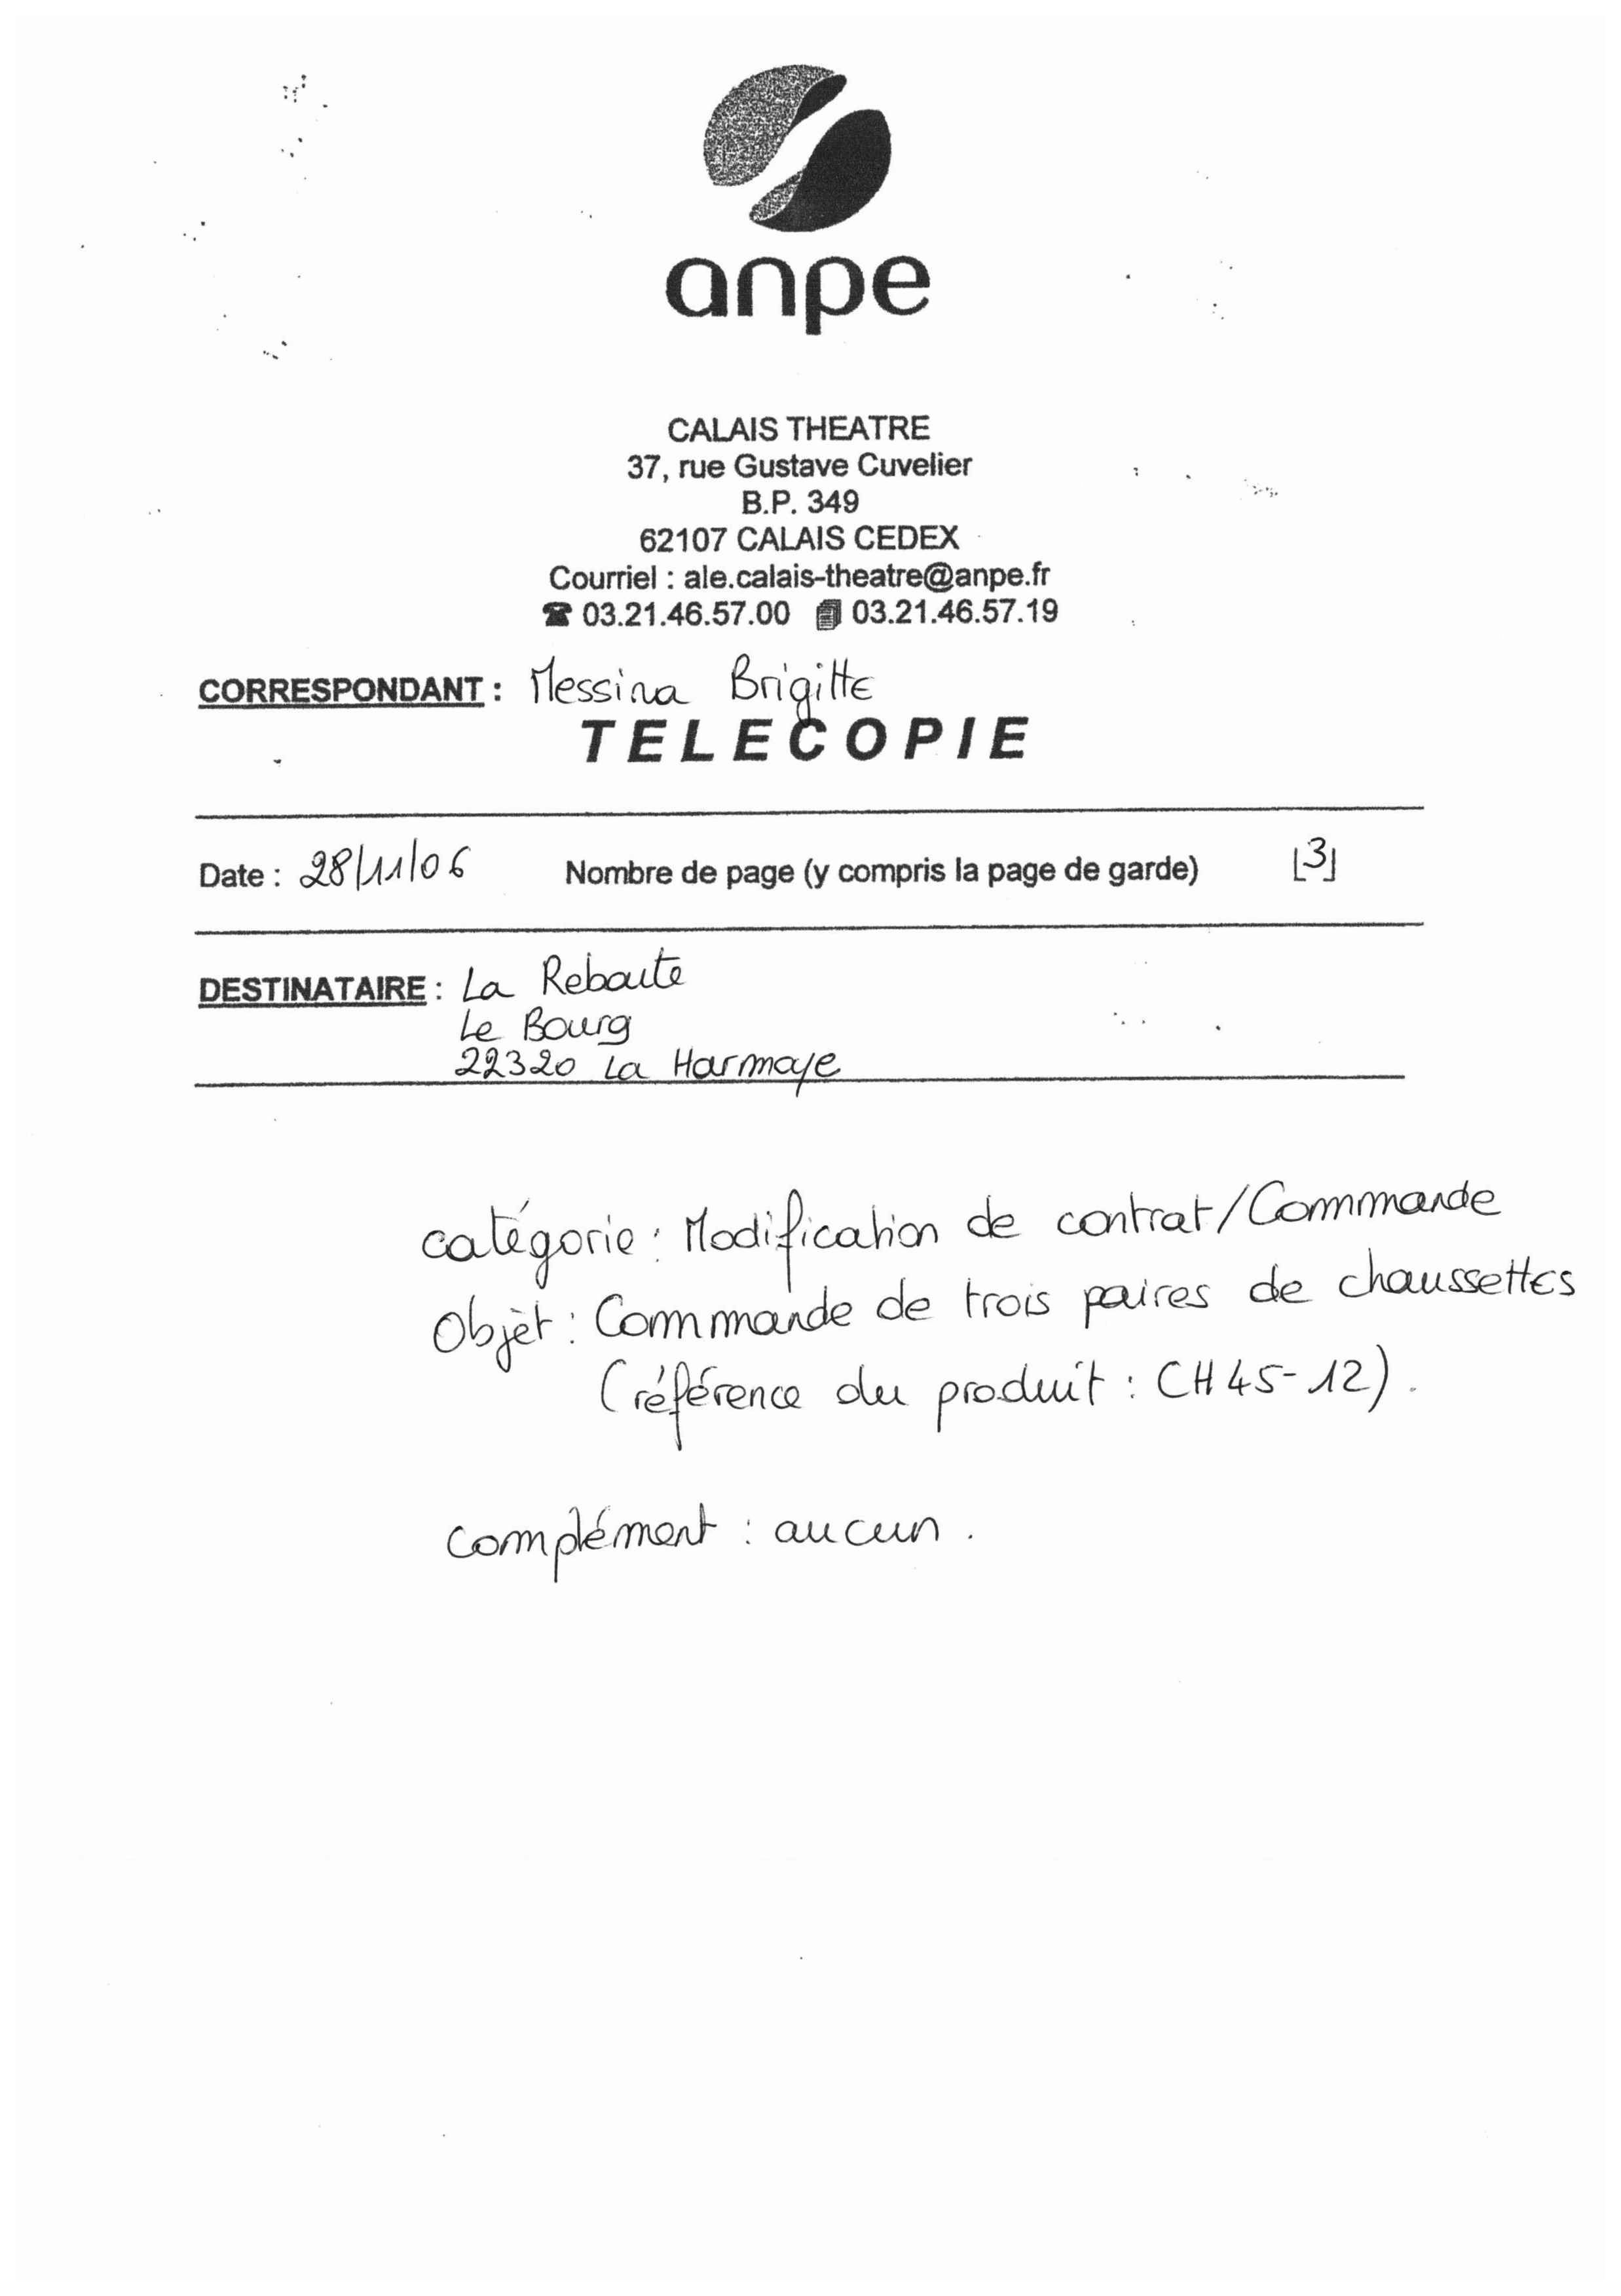 anpe
CALAIS THEATRE
37, rue Gustave Cuvelier
B.P. 349
62107 CALAIS CEDEX
Courriel : ale.calais-theatre@anpe.fr
☎ 03.21.46.57.00 03.21.46.57.19
CORRESPONDANT : Messina Brigitte
TELECOPIE
Date : 28/11/06 Nombre de page (y compris la page de garde) [3]
DESTINATAIRE : La Reboute
Le Bourg
22320 La Harmoye
catégorie : Modification de contrat/Commande
Objèt : Commande de trois paires de chaussettes
(référence du produit : CH45-12).
complément : aucun.